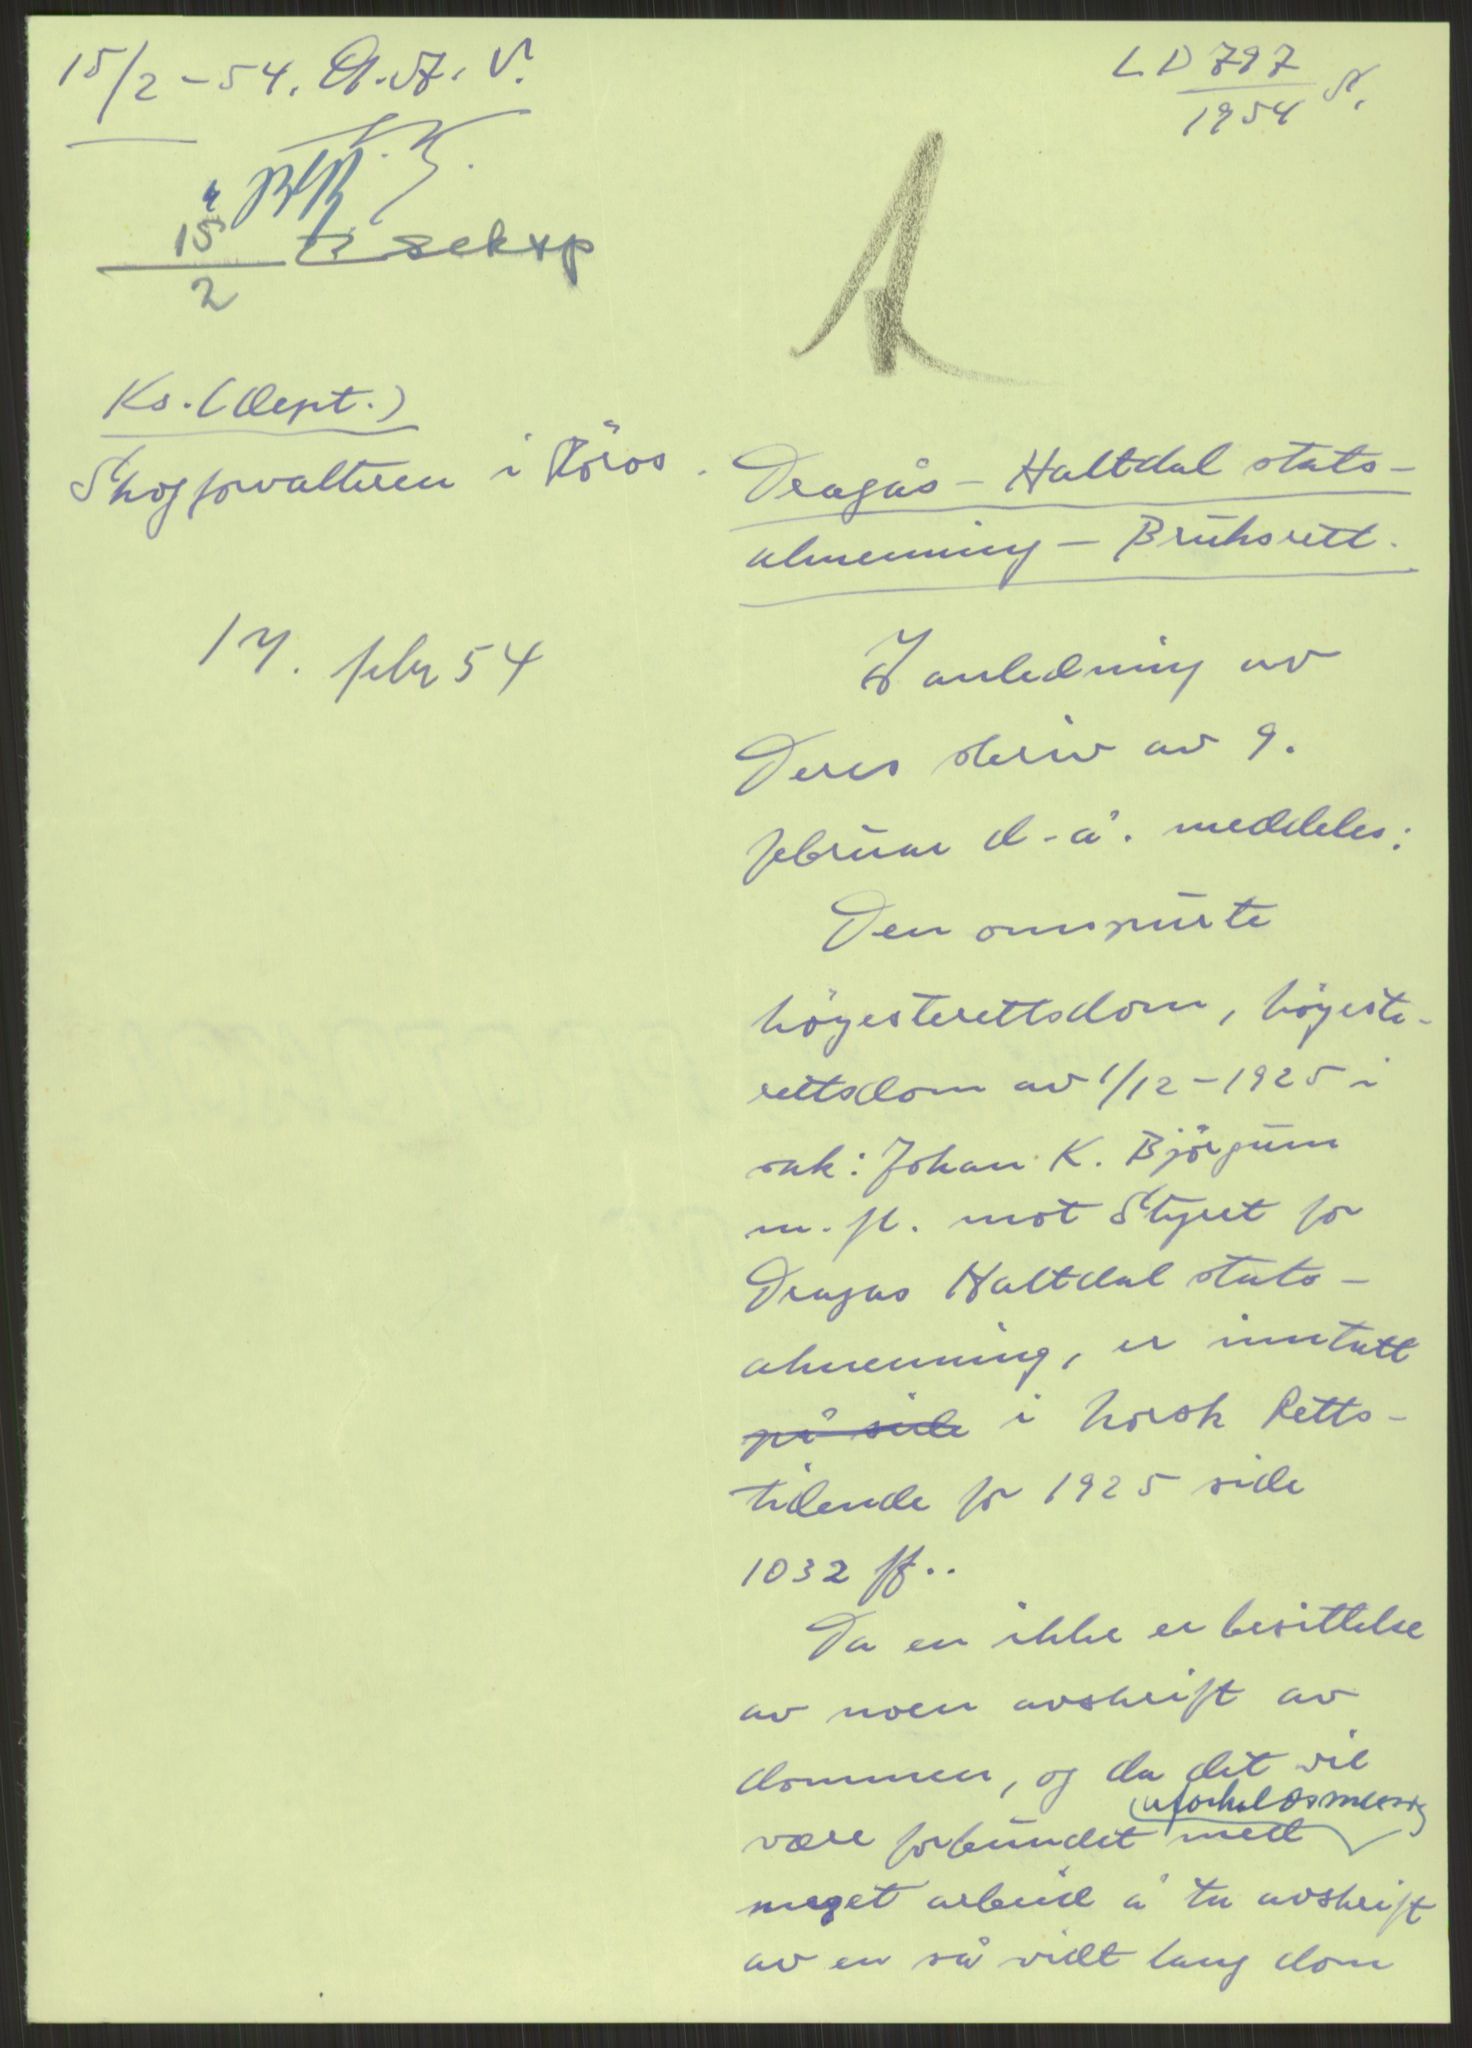 15/2-54. A.A.V.
LD 797
1954 S.
15
2
sekxp
Ks. (Dept.)
Skogforvalteren i Röros.
17. febr 54
Dragås - Haltdal stats-
almenning - Bruksrett.
I anledning av
Deres skriv av 9.
februar d-å. meddeles:
Den omspurte
höyesterettsdom, höyeste-
rettsdom av 1/12-1925 i
sak: Johan K. Björgum
m. fl. mot Styret for
Dragås Haltdal stats-
almenning, er inntatt
på side i Norsk Retts-
tidende for 1925 side
1032 ff..
Da en ikke er besittelse
av noen avskrift av
dommen, og da det vil
uforholdsmessig
være forbundet med
meget arbeid å ta avskrift
av en så vidt lang dom